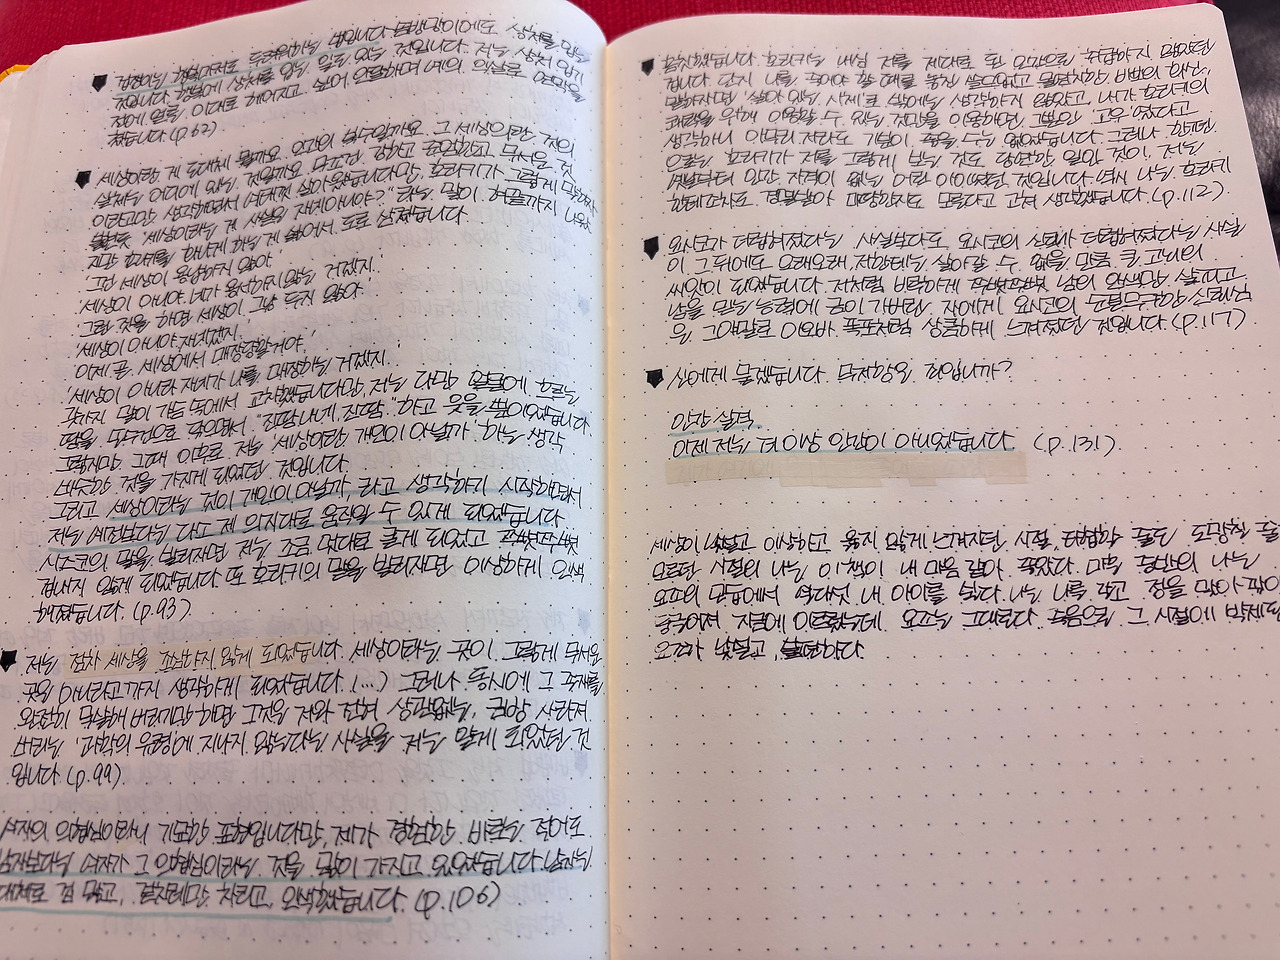 겁쟁이는 행복마저도 두려워하는 법입니다. 솜방망이에도 상처를 입는
것입니다. 행복에 상처를 입는 일도 있는 것입니다. 저는 상처 입기
전에 얼른, 이대로 헤어지고 싶어 안달하며 예의 익살로 연막을
쳤습니다 (p.62)
세상이란 게 도대체 뭘까요. 인간의 복수일까요. 그 세상이란 것의
실체는 어디에 있는 것일까요. 무조건 강하고 준엄하고 무서운 것
이라고만 생각하면서 여태껏 살아왔습니다만, 호리키가 그렇게 말하자
불현듯 "세상이라는 게 사실은 자네 아니야?" 라는 말이 혀끝까지 나왔
지만 호리키를 화나게 하는 게 싫어서 도로 삼켰습니다.
'그건 세상이 용납하지 않아'
'세상이 아니야. 네가 용서하지 않는 거겠지.'
'그런 짓을 하면 세상이 그냥 두지 않아.'
'세상이 아니야. 자네겠지.'
'이제 곧 세상에서 매장당할 거야.'
'세상이 아니라 자네가 나를 매장하는 거겠지.'
갖가지 말이 가슴 속에서 교차했습니다만, 저는 다만 얼굴에 흐르는
땀을 손수건으로 닦으면서 "진땀나네, 진땀." 하고 웃을 뿐이었습니다.
그렇지만 그때 이후로 저는 '세상이란 개인이 아닐까' 하는 생각
비슷한 것을 가지게 되었던 것입니다.
그리고 세상이라는 것이 개인이 아닐까 라고 생각하기 시작하면서
저는 예전보다는 다소 제 의지대로 움직일 수 있게 되었습니다.
시즈코의 말을 빌리자면 저는 조금 멋대로 굴게 되었고 쭈뼛쭈뼛
겁내지 않게 되었습니다. 또 호리키의 말을 빌리자면 이상하게 인색
해졌습니다. (p.93)
저는 점차 세상을 조심하지 않게 되었습니다. 세상이라는 곳이 그렇게 무서운
곳은 아니라고까지 생각하게 되었습니다. (...) 그러나 동시에 그 존재를
완전히 묵살해 버리기만 하면 그것은 저와 전혀 상관없는, 금방 사라져
버리는 '과학의 유령'에 지나지 않는다는 사실을 저는 알게 되었던 것
입니다 (p.99)
여자의 의협심이라니 기묘한 표현입니다만, 제가 경험한 바로는 적어도
남자보다는 여자가 그 의협심이라는 것을 많이 가지고 있었습니다. 남자는
대체로 겁 많고, 겉치레만 차리고, 인색했습니다. (p.106)
움찔했습니다. 호리키는 내심 저를 제대로 된 인간으로 취급하지 않았던
겁니다. 단지 나를 죽어야 할 때를 놓친 쓸모없고 몰염치한, 바보의 화신,
말하자면 '살아 있는 시체'로 밖에는 생각하지 않았고, 내가 호리키의
쾌락을 위해 이용할 수 있는 것만을 이용하면 그뿐인 '교우'였다고
생각하니 아무리 저라도 기분이 좋을 수는 없었습니다. 그러나 한편
으로는 호리키가 저를 그렇게 보는 것도 당연한 일인 것이, 저는
옛날부터 인간 자격이 없는 어린 아이였던 것입니다. 역시 나는 호리키
한테조차도 경멸받아 마땅한지도 모른다고 고쳐 생각했습니다. (p.112)
요시코가 더럽혀졌다는 사실보다도 요시코의 신뢰가 더럽혀졌다는 사실
이 그 뒤에도 오래오래, 저한테는 살아갈 수 없을 만큼 큰 고뇌의
씨앗이 되었습니다. 저처럼 비루하게 쭈뼛쭈뼛 남의 안색만 살피고
남을 믿는 능력에 금이 가버린 자에게 요시코의 순결무구한 신뢰심
은 그야말로 아오바 폭포처럼 상큼하게 느껴졌던 것입니다 (p.117)
신에게 묻겠습니다. 무저항은 죄입니까?
인간 실격
이제 저는 더이상 인간이 아니었습니다. (p.131)
세상이 낯설고 이상하고 옳지 않게 느껴지던 시절, 타협할 줄도 도망칠 줄
모르던 시절의 나는 이 책이 내 마음 같아 좋았다.